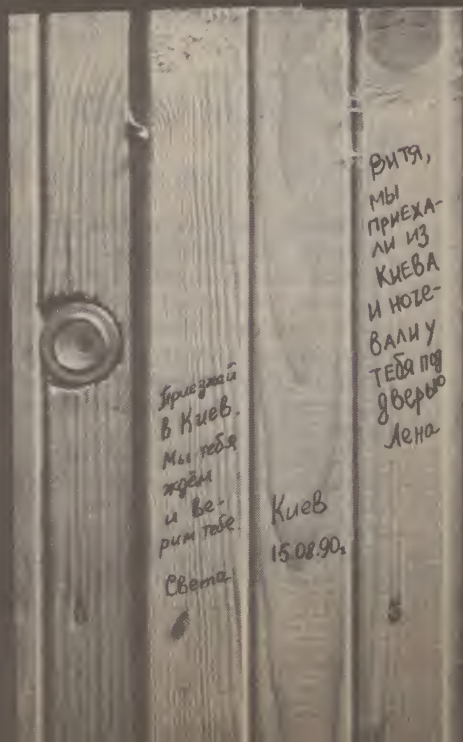 Приезжай
в Киев.
Мы тебя
ждём
и ве-
рим тебе.
Света
Киев
15.08.90г.
Витя,
мы
приеха-
ли из
Киева
и ноче-
вали у
тебя под
дверью
Лена